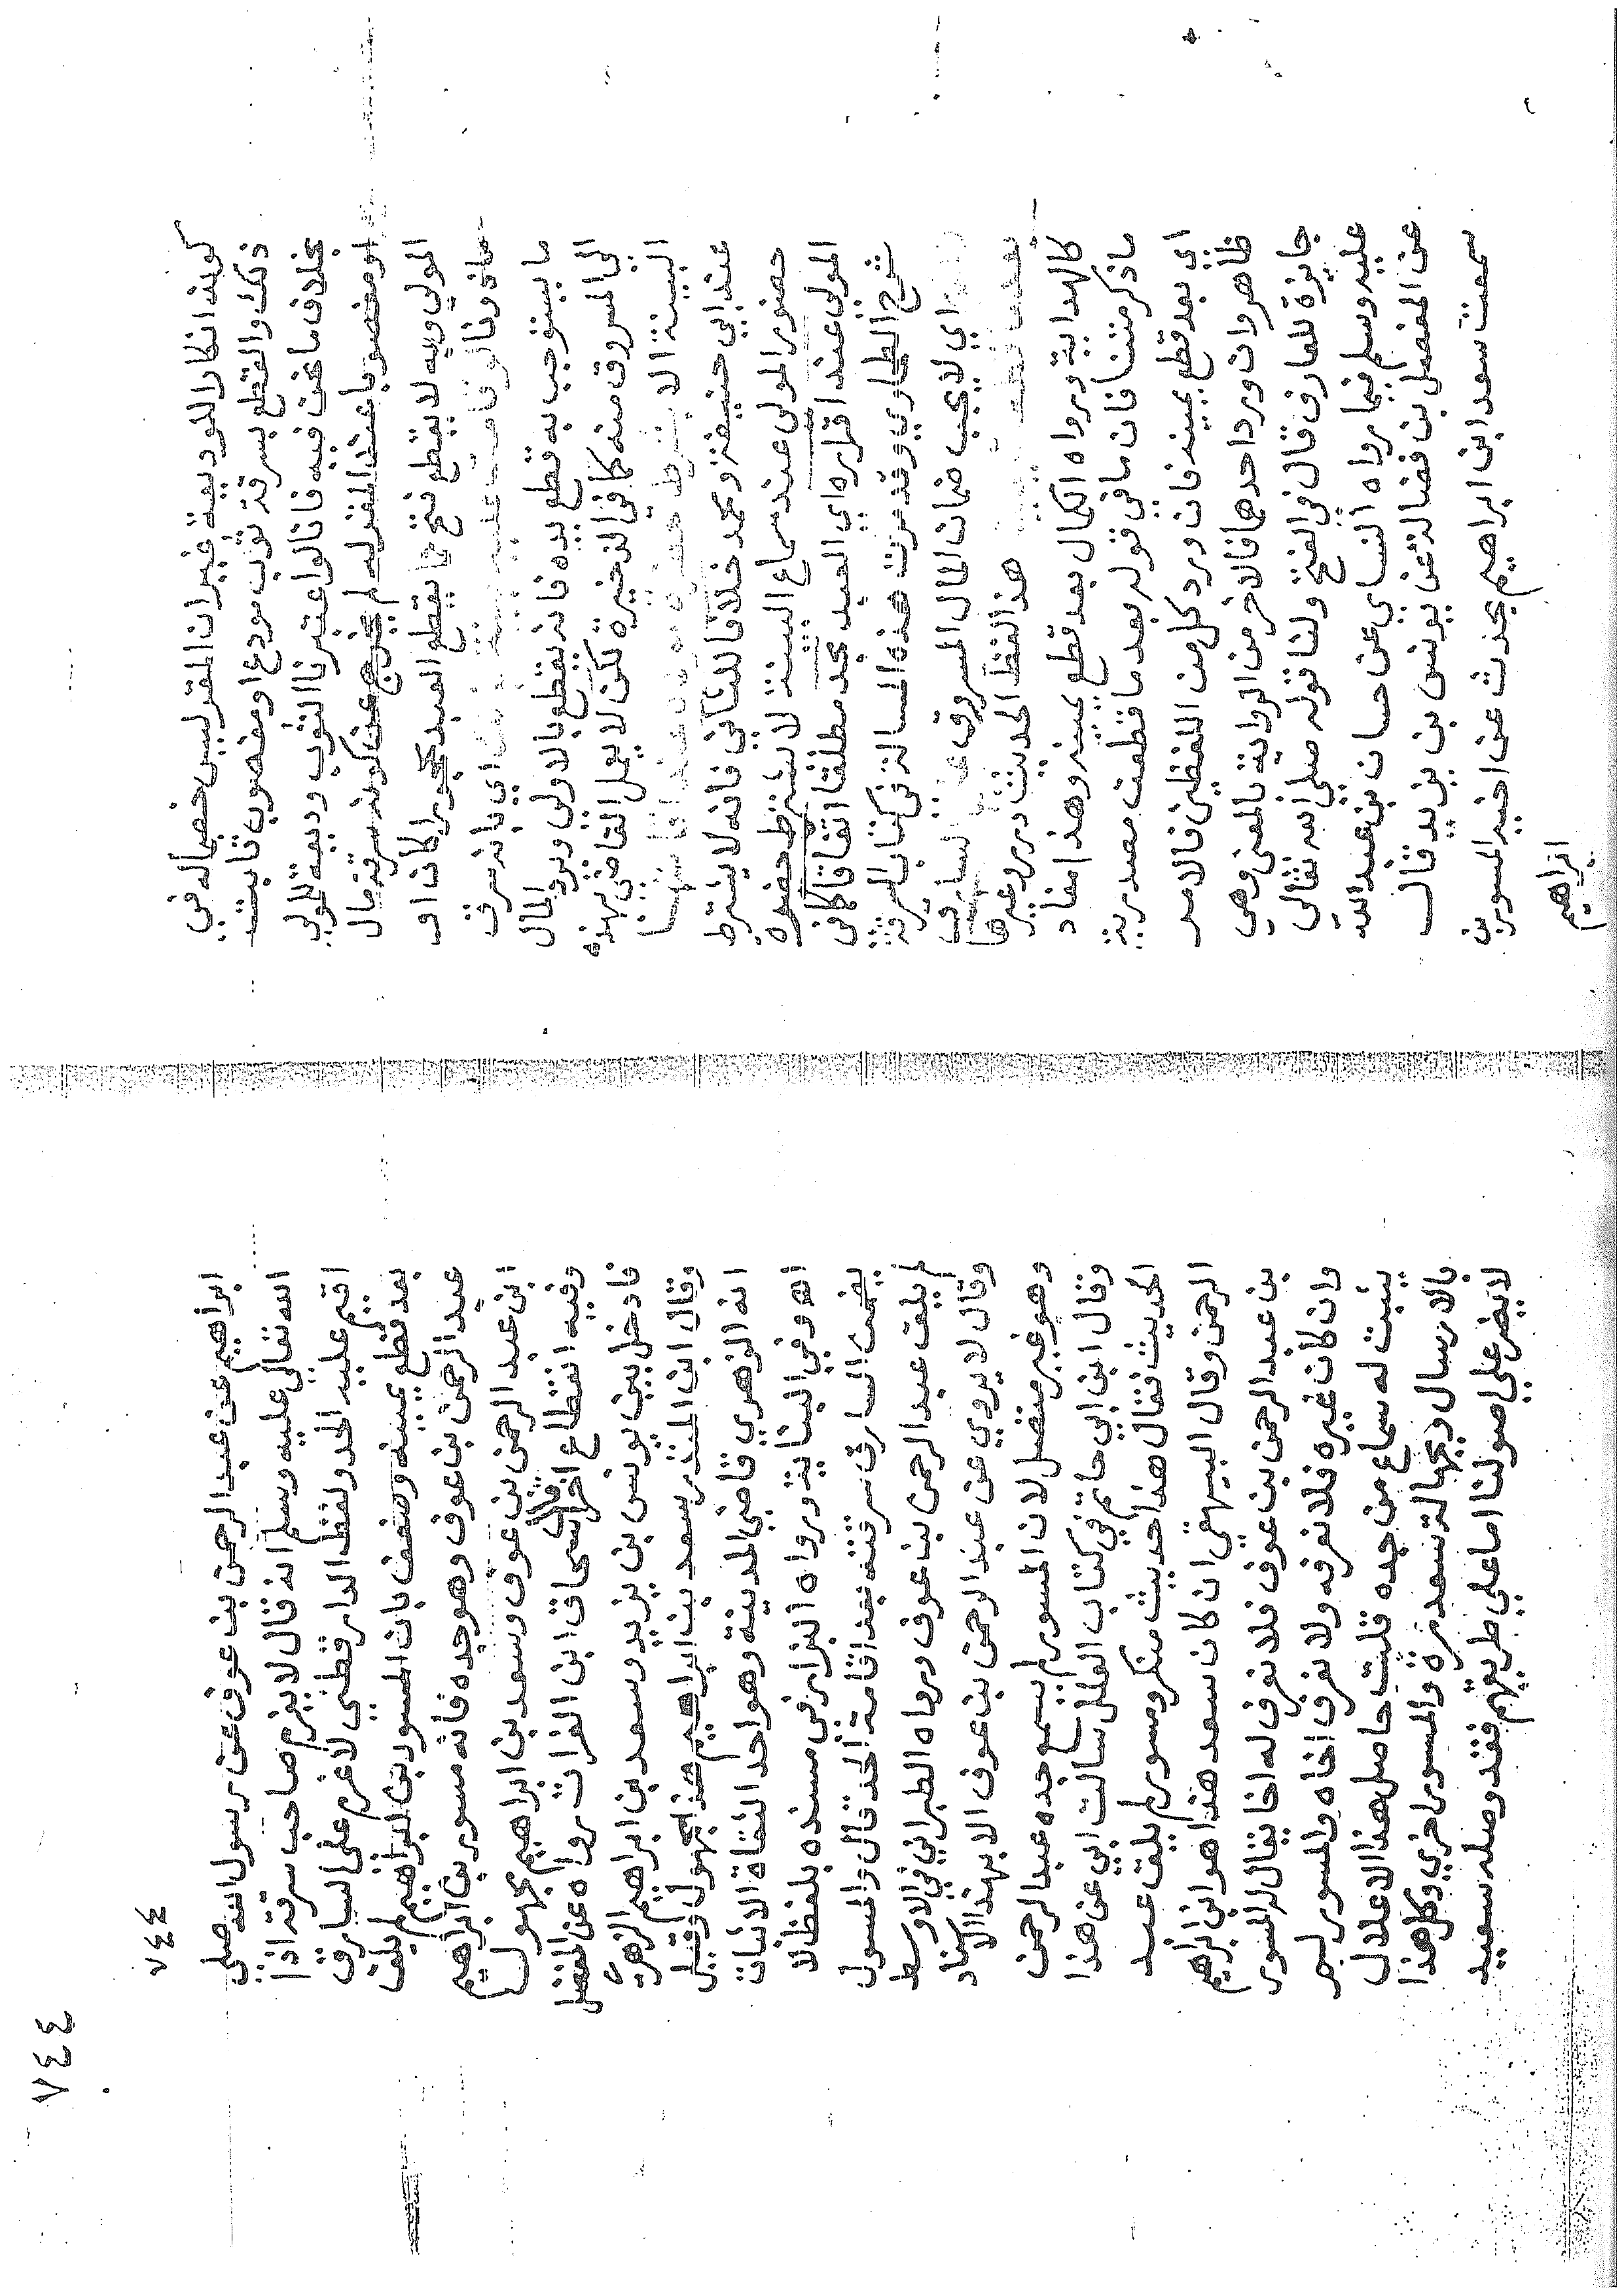 كونه انكارا للوديعة فبران المقر ليس خصماله في
ذلك والقطع بسرقة ثوب مودع او مغصوب ثابت
بخلاف ما نحن فيه فانا لو اعتبرنا الثوب وديعة للمولى
او مغصوبا عند المقر له لم يخرج عن كونه سرقة مال
المولى وبه لا يقطع فتح ثم يقطع العبد محجورا كان او
ماذونا لو قامت عليه بينة اي بانه سرق
ما يستوجب به قطع يده فانه يقطع بالاولى ويرد المال
الى المسروق منه كما في الذخيرة لكن لا يعمل القاضي بهذه
البينة الا بشرط حضرة مولاه عند اقامتها
عند ابي حنيفة ومحمد خلافا للثاني فانه لا يشترط
حضور المولى عند سماع البينة لا يشترط حضرة
المولى عند اقراره اي العبد بحد مطلقا اتفاقا كما في
شرح الطحاوي وقد مرت هذه المسالة في كتاب السرقة
اي لا يجب ضمان المال المسروق على السارق
بعد ما قطعت يمينه هذا لفظ الحديث درر وغيرها
كالهداية ورواه الكمال بعد قطع يمينه وهذا مفاد
ما ذكر متنا فان ما في قوله بعد ما قطعت مصدرية
اي بعد قطع يمينه فان ورد كل من اللفظين فالامر
ظاهر وان ورد احدهما فالاخر من الرواية بالمعنى وهي
جايزة للعارف قال في الفتح ولنا قوله صلى الله تعالى
عليه وسلم فيما رواه النساي عن حسان بن عبد الله
عن المفضل بن فضالة عن يونس بن يزيد قال
سمعت سعد ابن ابراهيم يحدث عن اخيه المسور بن
ابراهيم
٧٤٤
٧٤٤
ابراهيم عن عبد الرحمن بن عوف عن رسول الله صلى
الله تعالى عليه وسلم انه قال لا يغرم صاحب سرقة اذا
اقيم عليه الحد ولفظ الدارقطني لا غرم على السارق
بعد قطع يمينه وضعف بان المسور بن ابراهيم لم يلق
عبد الرحمن بن عوف وهو جده فانه مسور بن ابراهيم
ابن عبد الرحمن بن عوف وسعد بن ابراهيم مجهول
وفيه انقطاع اخر قال اسحاق ابن الفرات رواه عن المفضل
فادخل بين يونس بن يزيد وسعد بن ابراهيم الزهري
وقال ابن المنذر سعد بن ابراهيم هذا مجهول وقيل
انه الزهري قاضي المدينة وهو احد الثقاة الاثبات
اه وفي البناية ورواه البزار في مسنده بلفظ لا
يضمن السارق سرقته بعد اقامة الحد قال والمسور
لم يلق عبد الرحمن بن عوف ورواه الطبراني في الاوسط
وقال لا يروى عن عبد الرحمن بن عوف الا بهذا الاسناد
وهو غير متصل لان المسور لم يسمع جده عبد الرحمن
وقال ابن ابي حاتم في كتاب العلل سالت ابي عن هذا
الحديث فقال هذا حديث منكر ومسور لم يلق عبد
الرحمن وقال البيهقي ان كان سعد هذا هو ابن ابراهيم
بن عبد الرحمن بن عوف فلا نعرف له اخا يقال له المسور
وان كان غيره فلا نعرفه ولا نعرف اخاه والمسور لم
يثبت له سماع من جده قلت حاصل هذا الاعلال
بالارسال وبجهالة سعد مرة والمسور اخرى وكل هذا
لا يضر على اصولنا اما على طريقهم فقد وصله سعيد